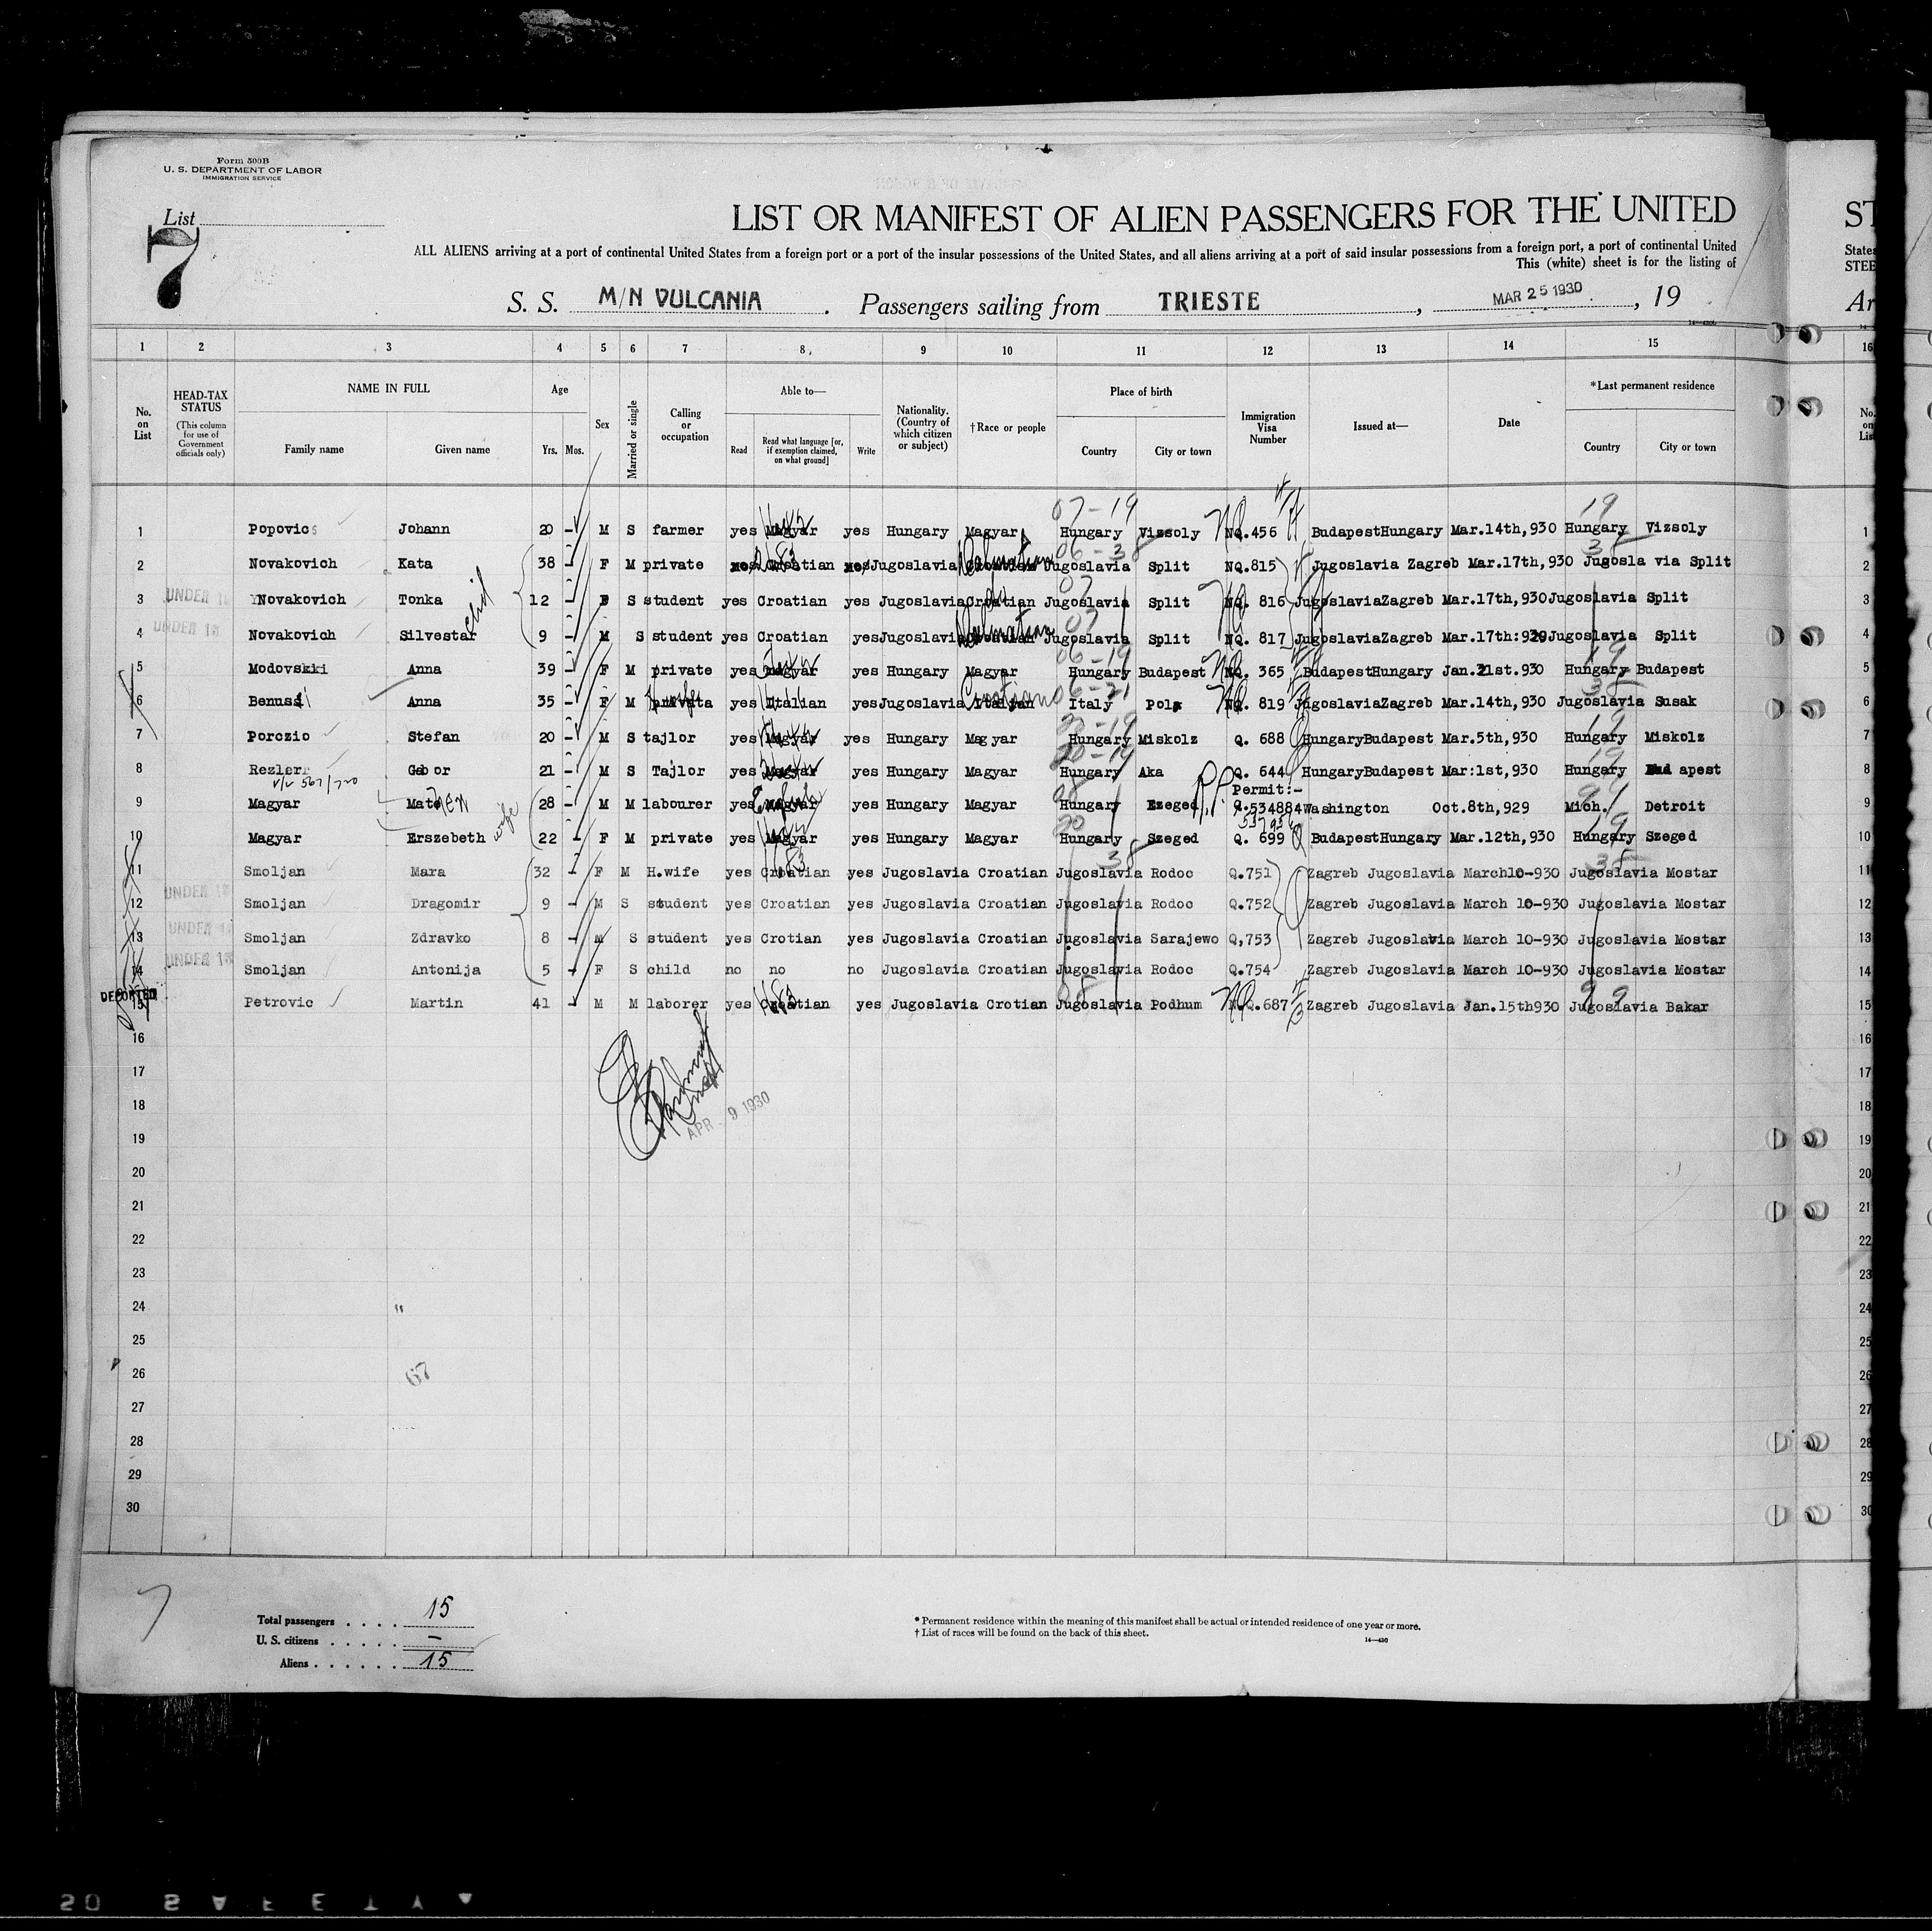 Form 500B
U. S. DEPARTMENT OF LABOR
IMMIGRATION SERVICE
List
7
LIST OR MANIFEST OF ALIEN PASSENGERS FOR THE UNITED
ST
ALL ALIENS arriving at a port of continental United States from a foreign port or a port of the insular possessions of the United States, and all aliens arriving at a port of said insular possessions from a foreign port, a port of continental United
States
This (white) sheet is for the listing of
STEE
S. S. M/N VULCANIA . Passengers sailing from TRIESTE , MAR 25 1930 , 19
Ar
1 2 3 4 5 6 7 8 9 10 11 12 13 14 15 16
No. on List
HEAD-TAX STATUS
(This column for use of Government officials only)
NAME IN FULL
Family name Given name
Age
Yrs. Mos.
Sex
Married or single
Calling or occupation
Able to—
Read
Read what language [or, if exemption claimed, on what ground]
Write
Nationality. (Country of which citizen or subject)
†Race or people
Place of birth
Country City or town
Immigration Visa Number
Issued at—
Date
*Last permanent residence
Country City or town
No. on List
07-19 19
1 Popovics Johann 20 - M S farmer yes Magyar yes Hungary Magyar Hungary Vizsoly NQ.456 BudapestHungary Mar.14th,930 Hungary Vizsoly 1
2 Novakovich Kata 38 - F M private Croatian Jugoslavia Dalmatian Jugoslavia Split NQ.815 Jugoslavia Zagreb Mar.17th,930 Jugosla via Split 2
3 UNDER 16 Novakovich Tonka 12 - F S student yes Croatian yes Jugoslavia Croatian Jugoslavia Split NQ. 816 JugoslaviaZagreb Mar.17th,930 Jugoslavia Split 3
4 UNDER 16 Novakovich Silvestar child 9 - M S student yes Croatian yes Jugoslavia Dalmatian Jugoslavia Split NQ. 817 JugoslaviaZagreb Mar.17th:929 Jugoslavia Split 4
5 Modovski Anna 39 - F M private yes Magyar yes Hungary Magyar Hungary Budapest NQ. 365 BudapestHungary Jan.21st.930 Hungary Budapest 5
6 Benussi Anna 35 - F M private wife yes Italian yes Jugoslavia Italian Croatian Italy Pola NQ. 819 JugoslaviaZagreb Mar.14th,930 Jugoslavia Susak 6
7 Porczio Stefan 20 - M S tajlor yes Magyar yes Hungary Magyar Hungary Miskolz Q. 688 HungaryBudapest Mar.5th,930 Hungary Miskolz 7
8 Rezler Gabor 21 - M S Tajlor yes Magyar yes Hungary Magyar Hungary Aka Q. 644 HungaryBudapest Mar:1st,930 Hungary Bud apest 8
Permit:-
9 Magyar Mate 28 - M M labourer yes Magyar yes Hungary Magyar Hungary Szeged Q.534884 Washington Oct.8th,929 Mich. Detroit 9
10 Magyar Erszebeth wife 22 - F M private yes Magyar yes Hungary Magyar Hungary Szeged Q. 699 BudapestHungary Mar.12th,930 Hungary Szeged 10
11 Smoljan Mara 32 - F M H.wife yes Croatian yes Jugoslavia Croatian Jugoslavia Rodoc Q.751 Zagreb Jugoslavia March10-930 Jugoslavia Mostar 11
12 UNDER 16 Smoljan Dragomir 9 - M S student yes Croatian yes Jugoslavia Croatian Jugoslavia Rodoc Q.752 Zagreb Jugoslavia March 10-930 Jugoslavia Mostar 12
13 UNDER 16 Smoljan Zdravko 8 - M S student yes Crotian yes Jugoslavia Croatian Jugoslavia Sarajewo Q,753 Zagreb Jugoslavia March 10-930 Jugoslavia Mostar 13
14 UNDER 16 Smoljan Antonija 5 - F S child no no no Jugoslavia Croatian Jugoslavia Rodoc Q.754 Zagreb Jugoslavia March 10-930 Jugoslavia Mostar 14
15 DEPORTED Petrovic Martin 41 - M M laborer yes Croatian yes Jugoslavia Crotian Jugoslavia Podhum N.Q.687 Zagreb Jugoslavia Jan.15th930 Jugoslavia Bakar 15
16 16
17 17
18 APR 9 1930 18
19 19
20 20
21 21
22 22
23 23
24 " 24
25 25
26 67 26
27 27
28 28
29 29
30 30
7
Total passengers . . . . 15
U. S. citizens . . . . . –
Aliens . . . . . . 15
* Permanent residence within the meaning of this manifest shall be actual or intended residence of one year or more.
† List of races will be found on the back of this sheet.
14—430
SAFETY